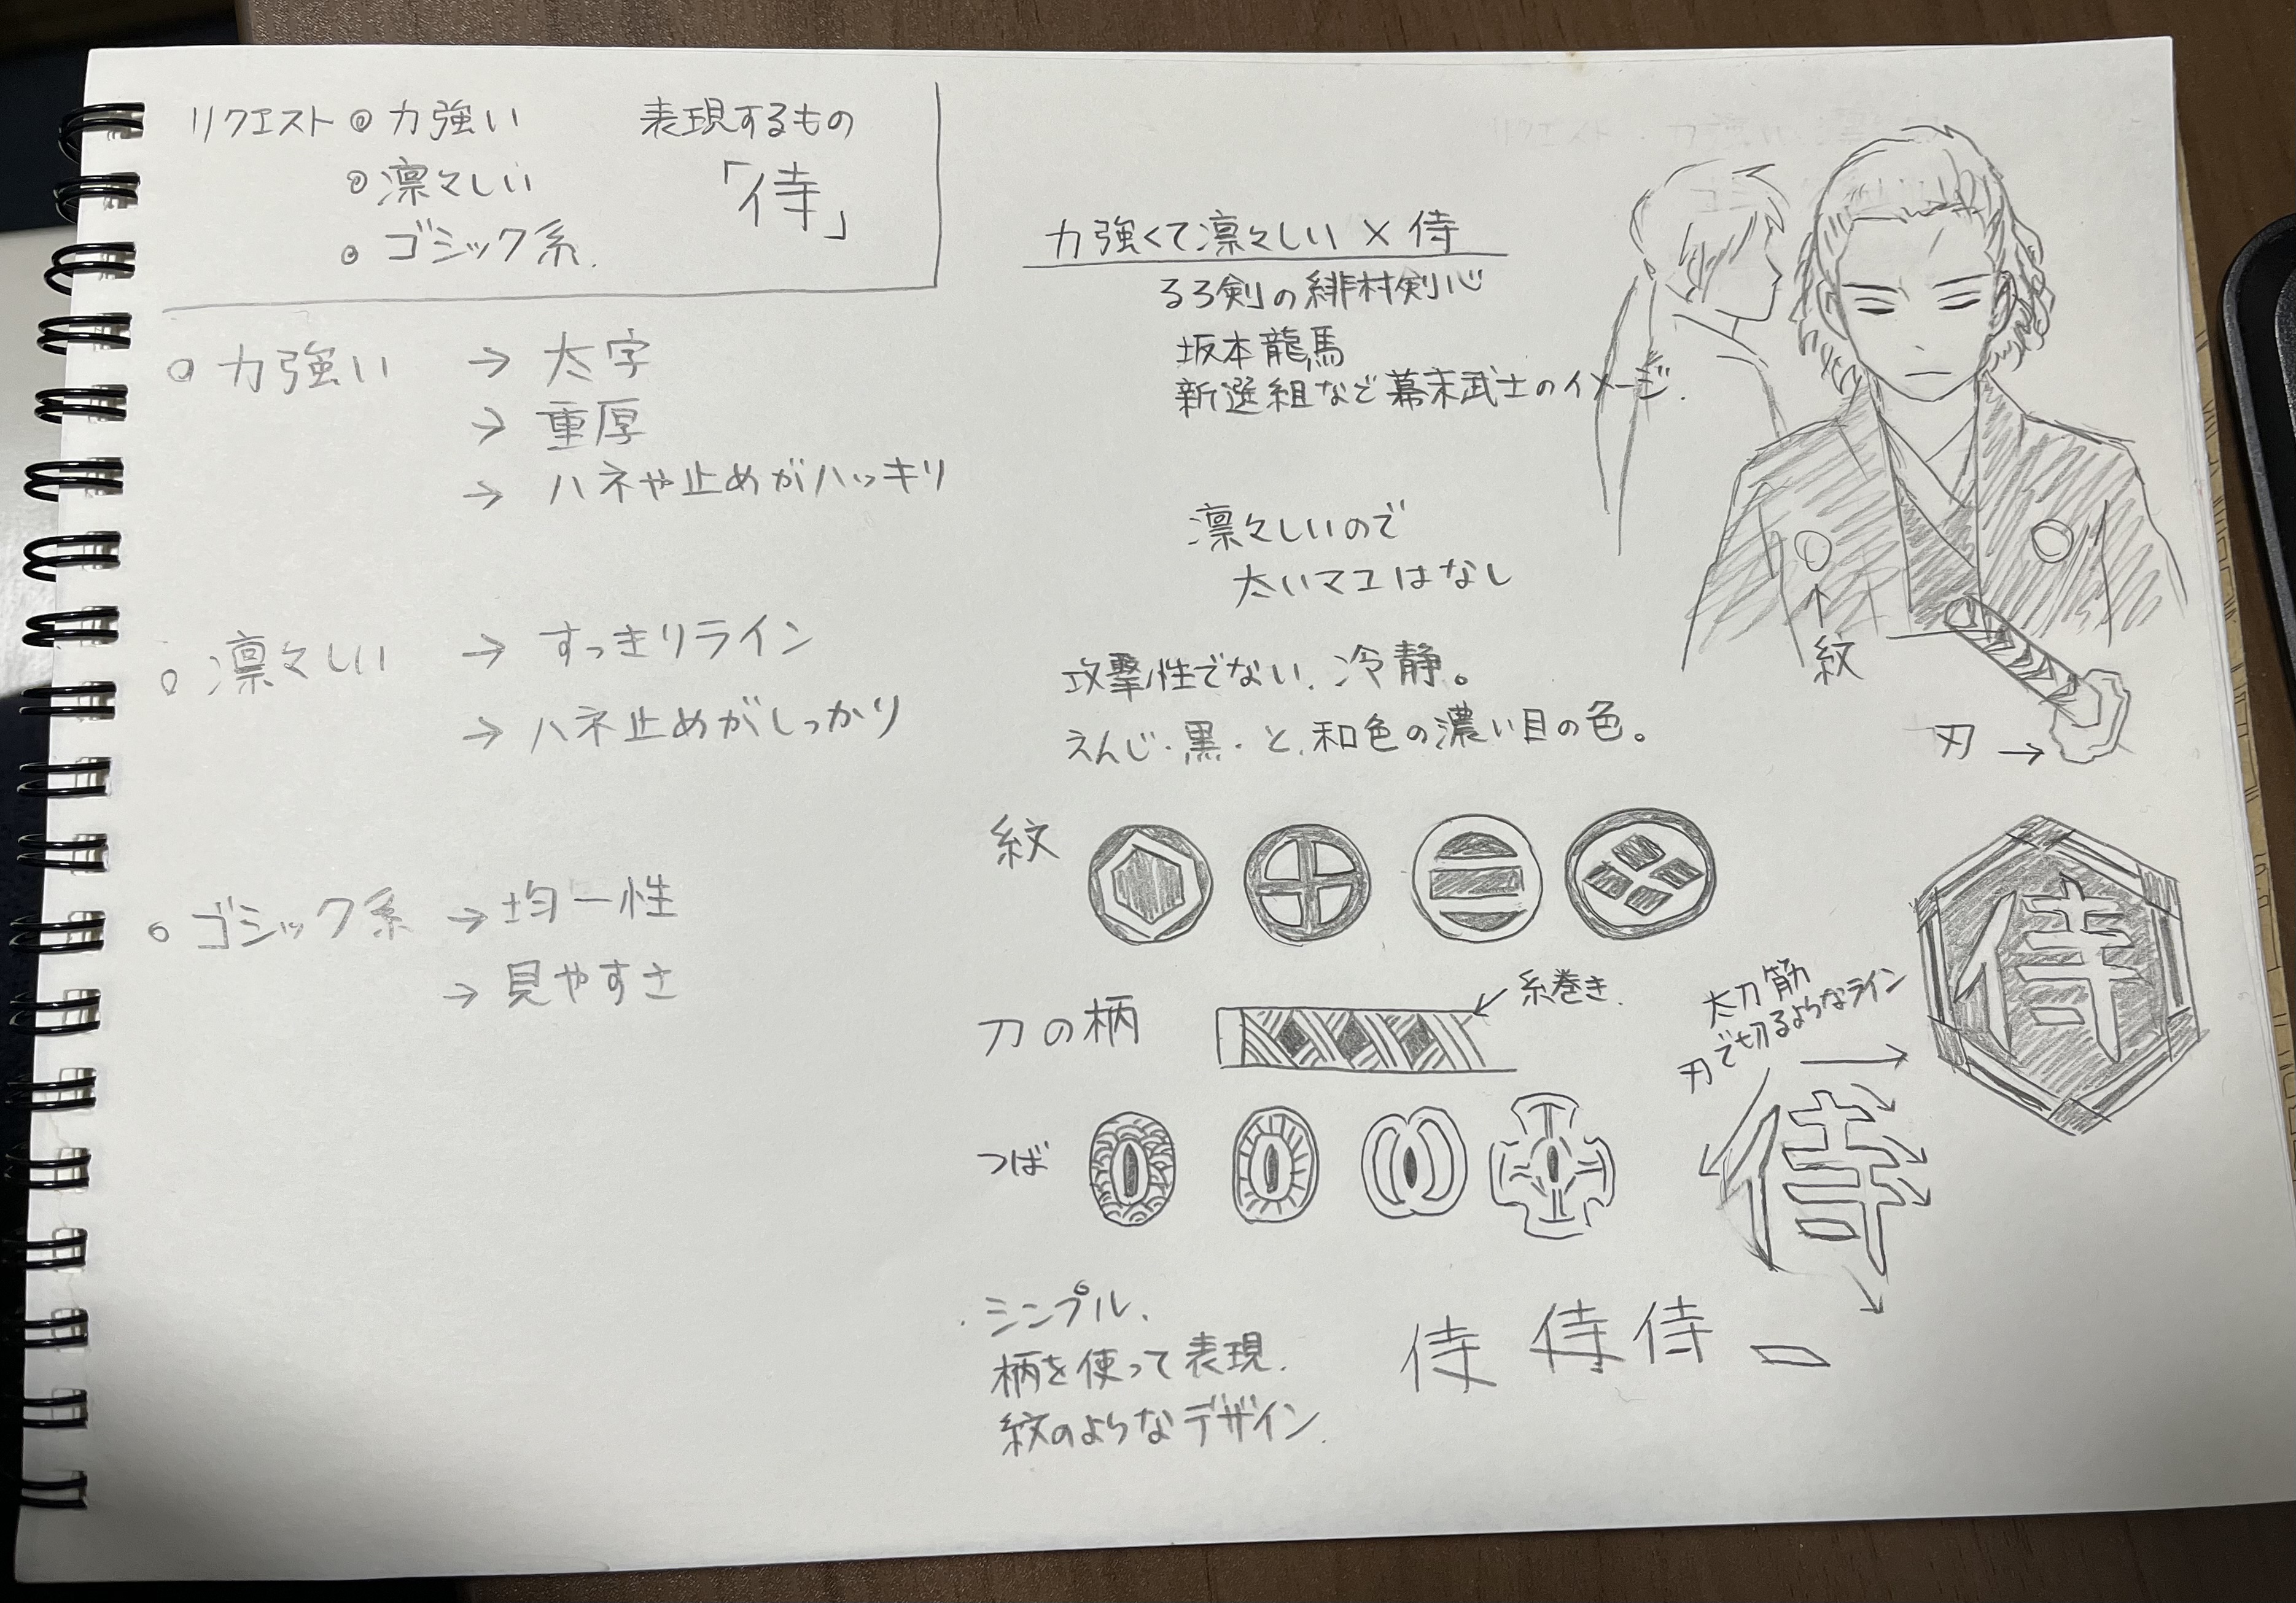 リクエスト ◎ 力強い
◎ 凛々しい
◎ ゴシック系.
表現するもの
「侍」
○ 力強い → 太字
→ 重厚
→ ハネや止めがハッキリ
○ 凛々しい → すっきりライン
→ ハネ止めがしっかり
○ ゴシック系 → 均一性
→ 見やすさ
力強くて凛々しい × 侍
るろ剣の緋村剣心
坂本龍馬
新選組など幕末武士のイメージ.
凛々しいので
太いマユはなし
攻撃性でない、冷静。
えんじ・黒・と、和色の濃い目の色。
紋
刃 →
紋
刀の柄
糸巻き.
つば
太刀筋
刃で切るようなライン
侍
侍
・シンプル、
柄を使って表現.
紋のようなデザイン.
侍 侍 侍